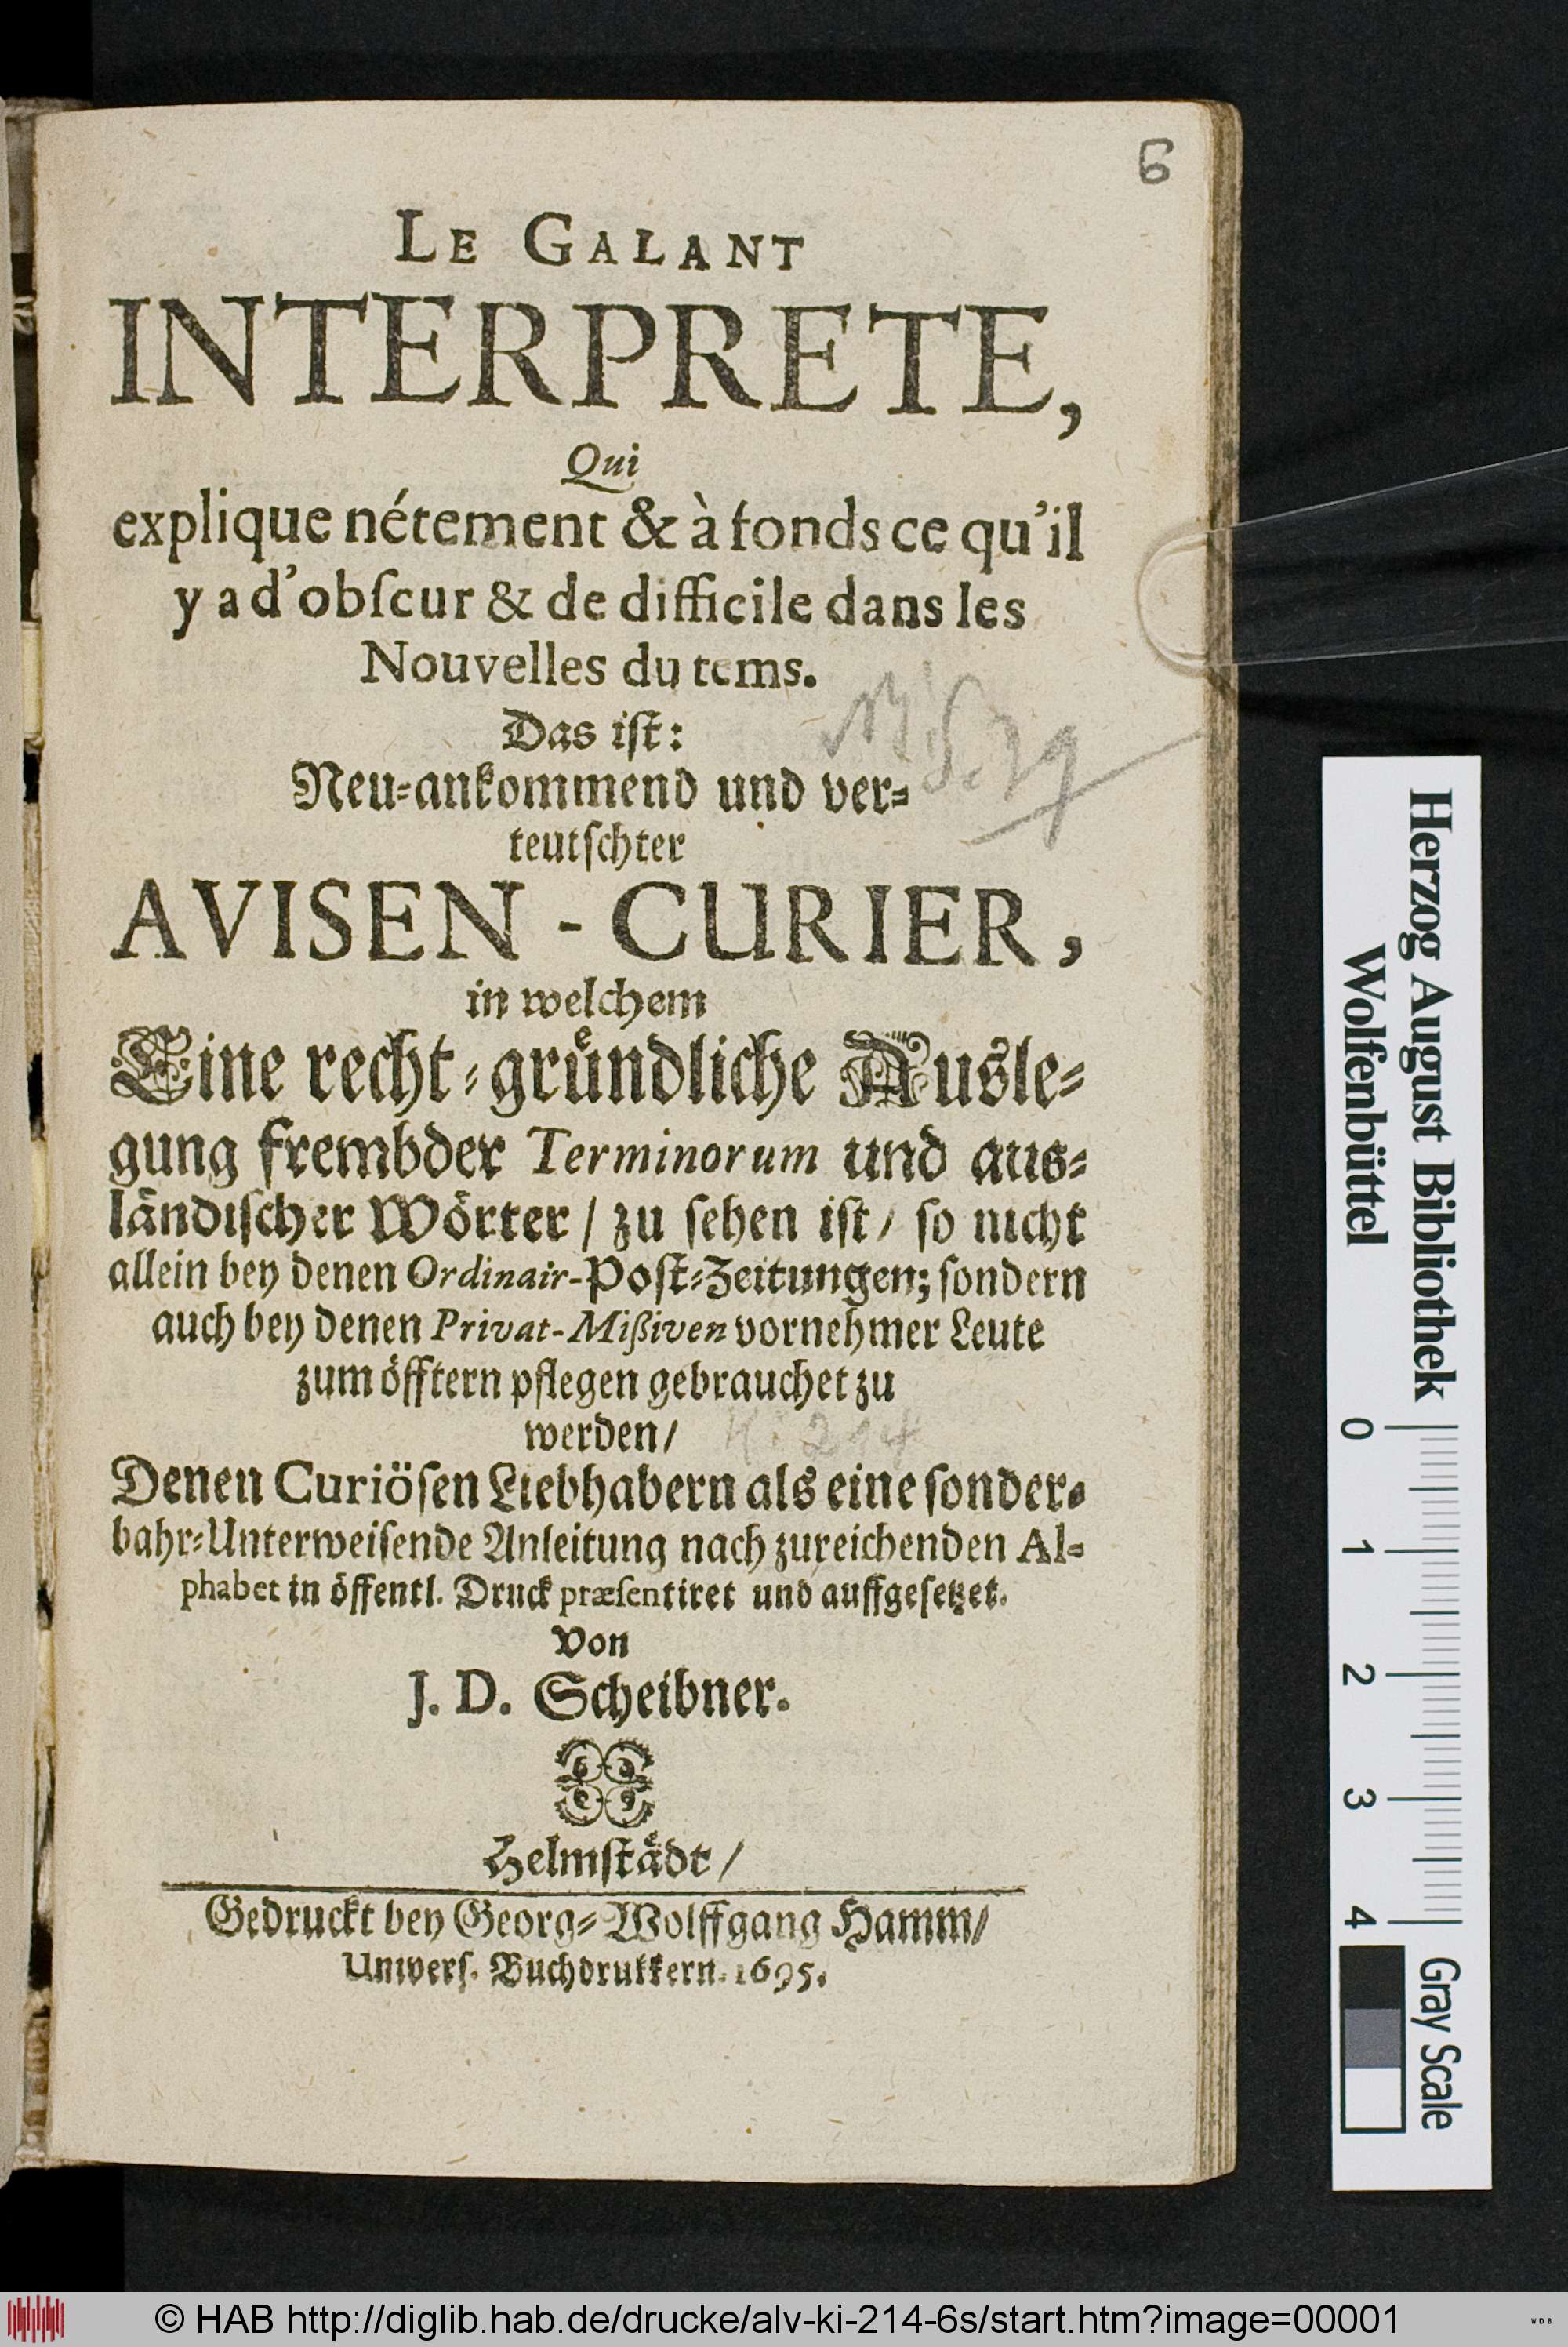 6
LE GALANT
INTERPRETE,
Qui
explique nétement & à fonds ce qu'il
y a d'obſcur & de difficile dans les
Nouvelles du tems.
Das iſt:
Neu-ankommend und ver-
teutſchter
AVISEN-CURIER,
in welchem
Eine recht-gruͤndliche Ausle-
gung frembder Terminorum und aus-
laͤndiſcher Woͤrter / zu ſehen iſt / ſo nicht
allein bey denen Ordinair-Poſt-Zeitungen; ſondern
auch bey denen Privat-Mißiven vornehmer Leute
zum oͤfftern pflegen gebrauchet zu
werden /
Ki 214
Denen Curiöſen Liebhabern als eine ſonder-
bahr-Unterweiſende Anleitung nach zureichenden Al-
phabet in öffentl. Druck præſentiret und auffgeſetzet.
Von
J. D. Scheibner.
Helmſtaͤdt /
Gedruckt bey Georg-Wolffgang Hamm /
Univerſ. Buchdrukkern. 1695.
Herzog August Bibliothek
Wolfenbüttel
0 1 2 3 4
Gray Scale
© HAB http://diglib.hab.de/drucke/alv-ki-214-6s/start.htm?image=00001
WDB